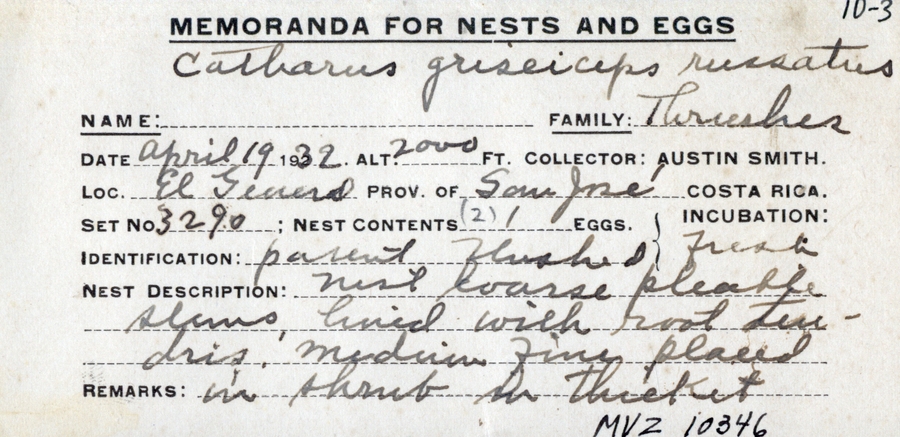 10-3
MEMORANDA FOR NESTS AND EGGS
Catharus griseiceps russatus
NAME: FAMILY: Thrushes
DATE April 19 1932. ALT. 2000 FT. COLLECTOR: AUSTIN SMITH.
LOC. El General PROV. OF San José COSTA RICA.
SET NO. 3290 ; NEST CONTENTS (2) 1 EGGS. INCUBATION:
IDENTIFICATION: parent flushed Fresh
NEST DESCRIPTION: nest coarse pleable
stems, lined with root ten-
dris, medium fine, placed
REMARKS: in shrub in thicket
MVZ 10346